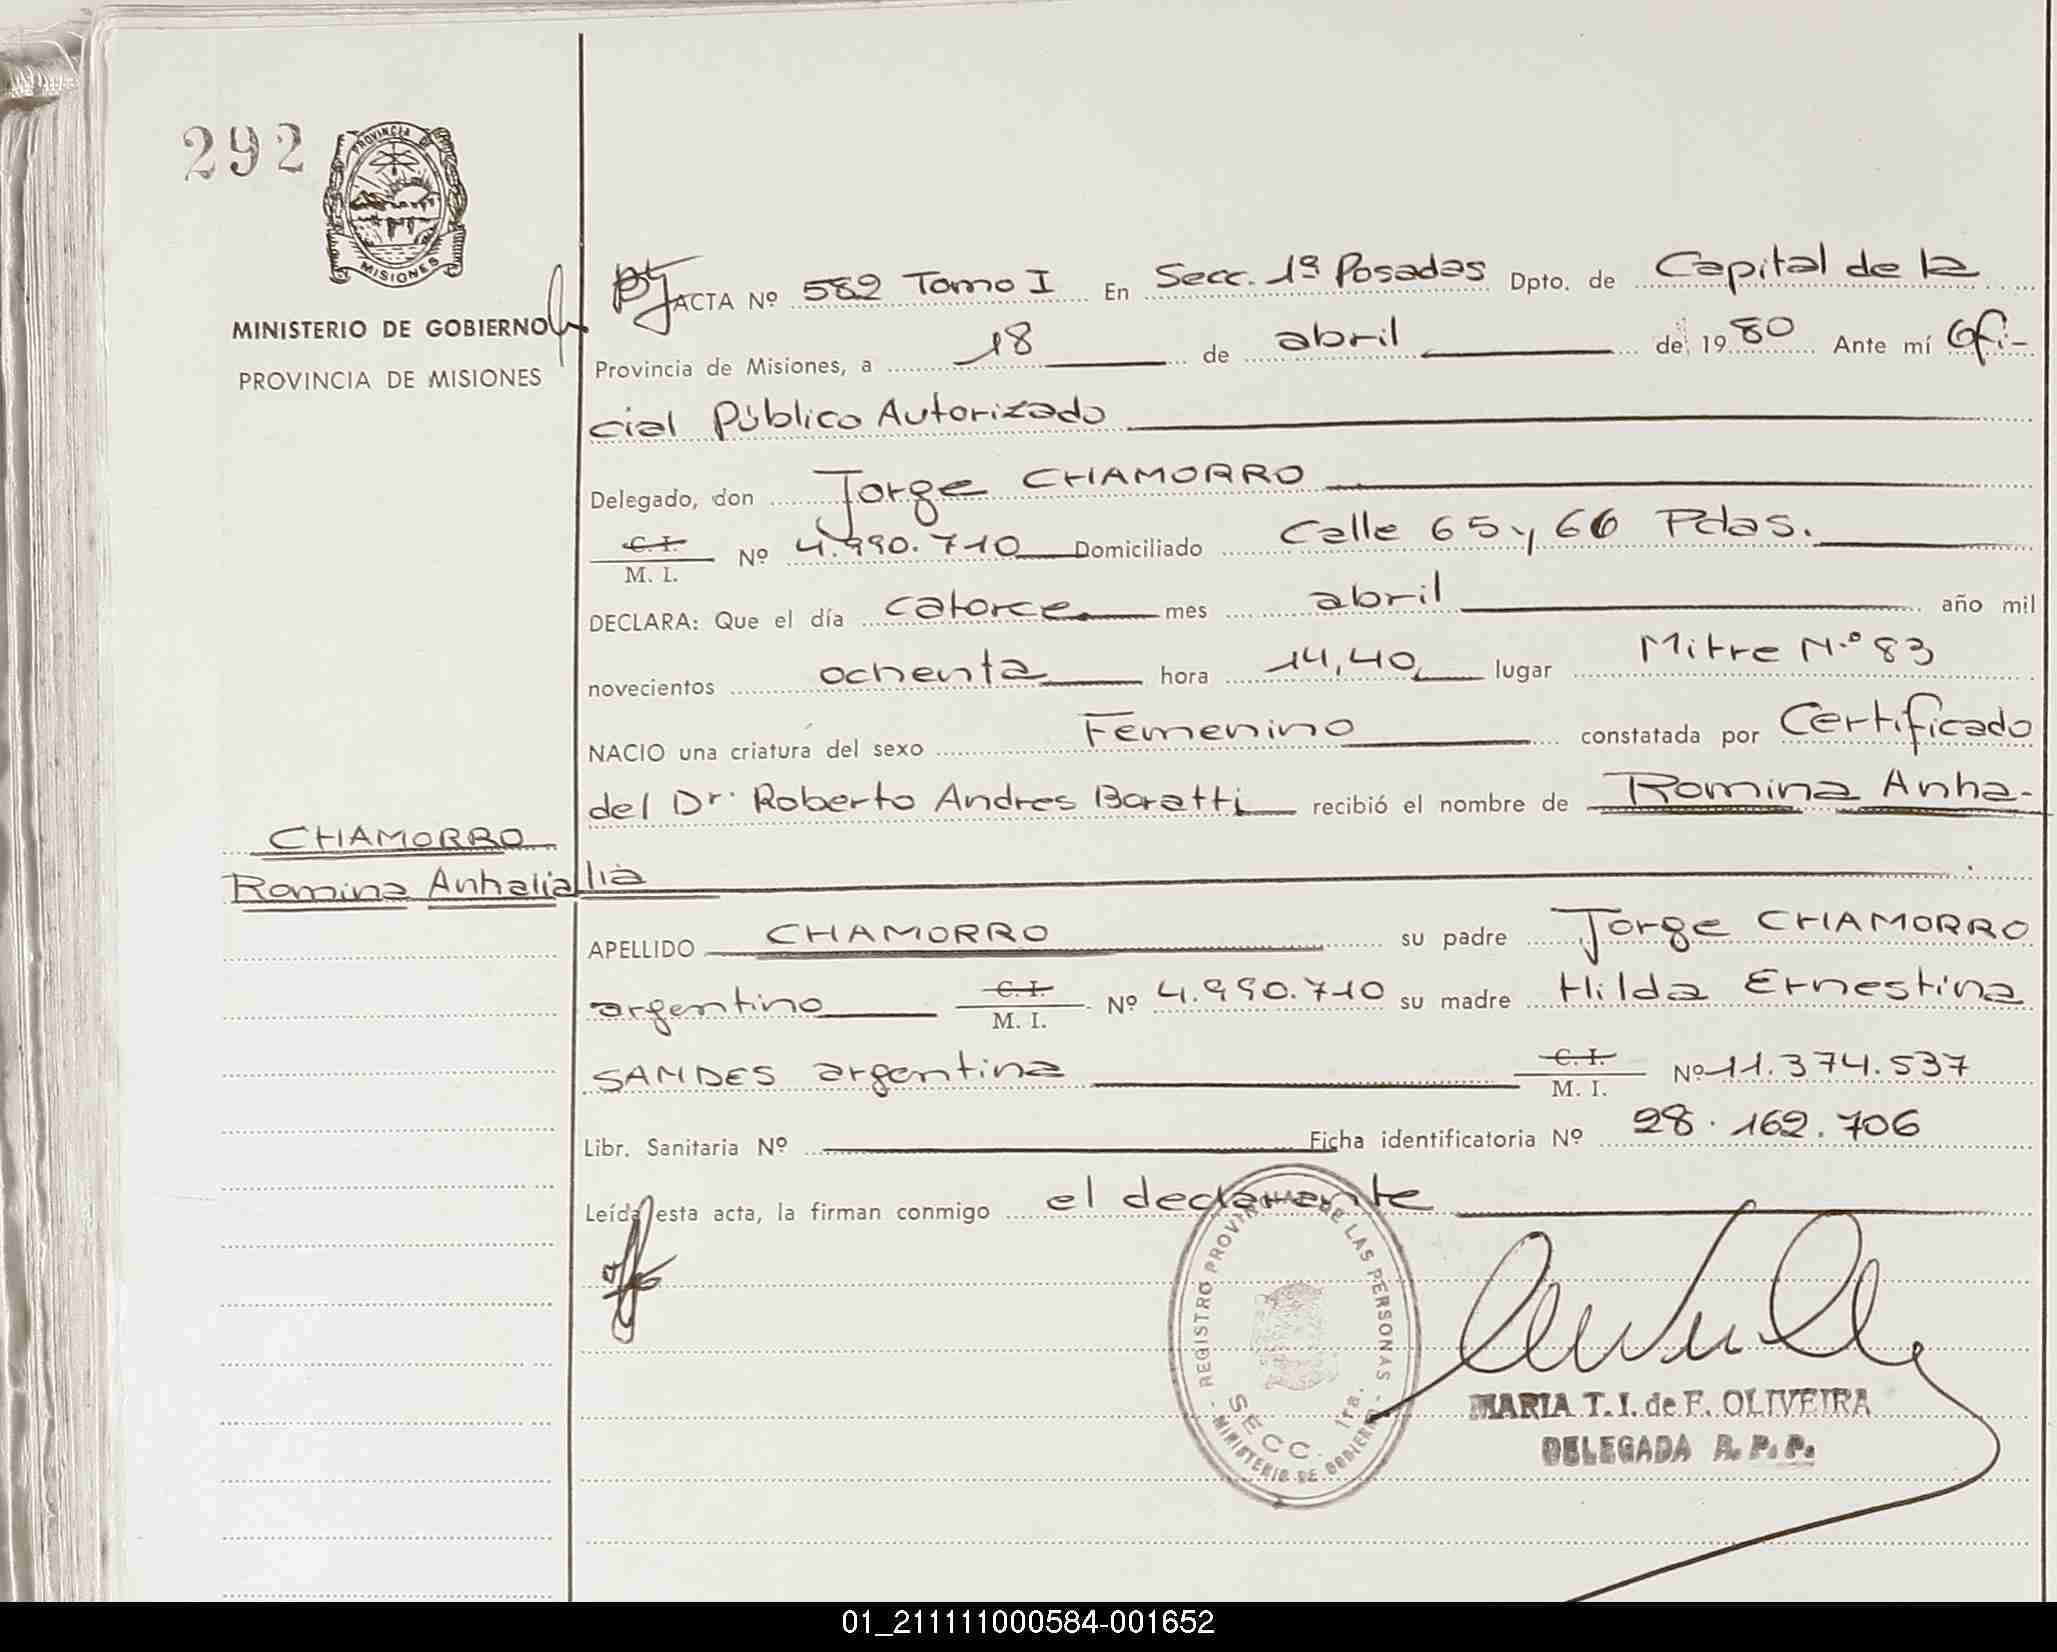 292
PROVINCIA DE
MISIONES
MINISTERIO DE GOBIERNO
PROVINCIA DE MISIONES
CHAMORRO
Romina Anhalia
ACTA Nº 582 Tomo I En Secc. 1ª Posadas Dpto. de Capital de la
Provincia de Misiones, a 18 de abril de 1980 Ante mí Ofi-
cial Público Autorizado
Delegado, don Jorge CHAMORRO
C. I.
M. I.
Nº 4.990.710 Domiciliado Calle 65 y 66 Pdas.
DECLARA: Que el día catorce mes abril año mil
novecientos ochenta hora 14,40 lugar Mitre N.º 83
NACIO una criatura del sexo Femenino constatada por Certificado
del Dr. Roberto Andres Boratti recibió el nombre de Romina Anha-
lia
APELLIDO CHAMORRO su padre Jorge CHAMORRO
argentino C. I.
M. I.
Nº 4.990.710 su madre Hilda Ernestina
SANDES argentina C. I.
M. I.
Nº 11.374.537
Libr. Sanitaria Nº Ficha identificatoria Nº 28.162.706
Leída esta acta, la firman conmigo el declarante
REGISTRO PROVINCIAL DE LAS PERSONAS
SECC. 1ra.
MINISTERIO DE GOBIERNO
MARIA T. I. de F. OLIVEIRA
DELEGADA R. P. P.
01_211111000584-001652